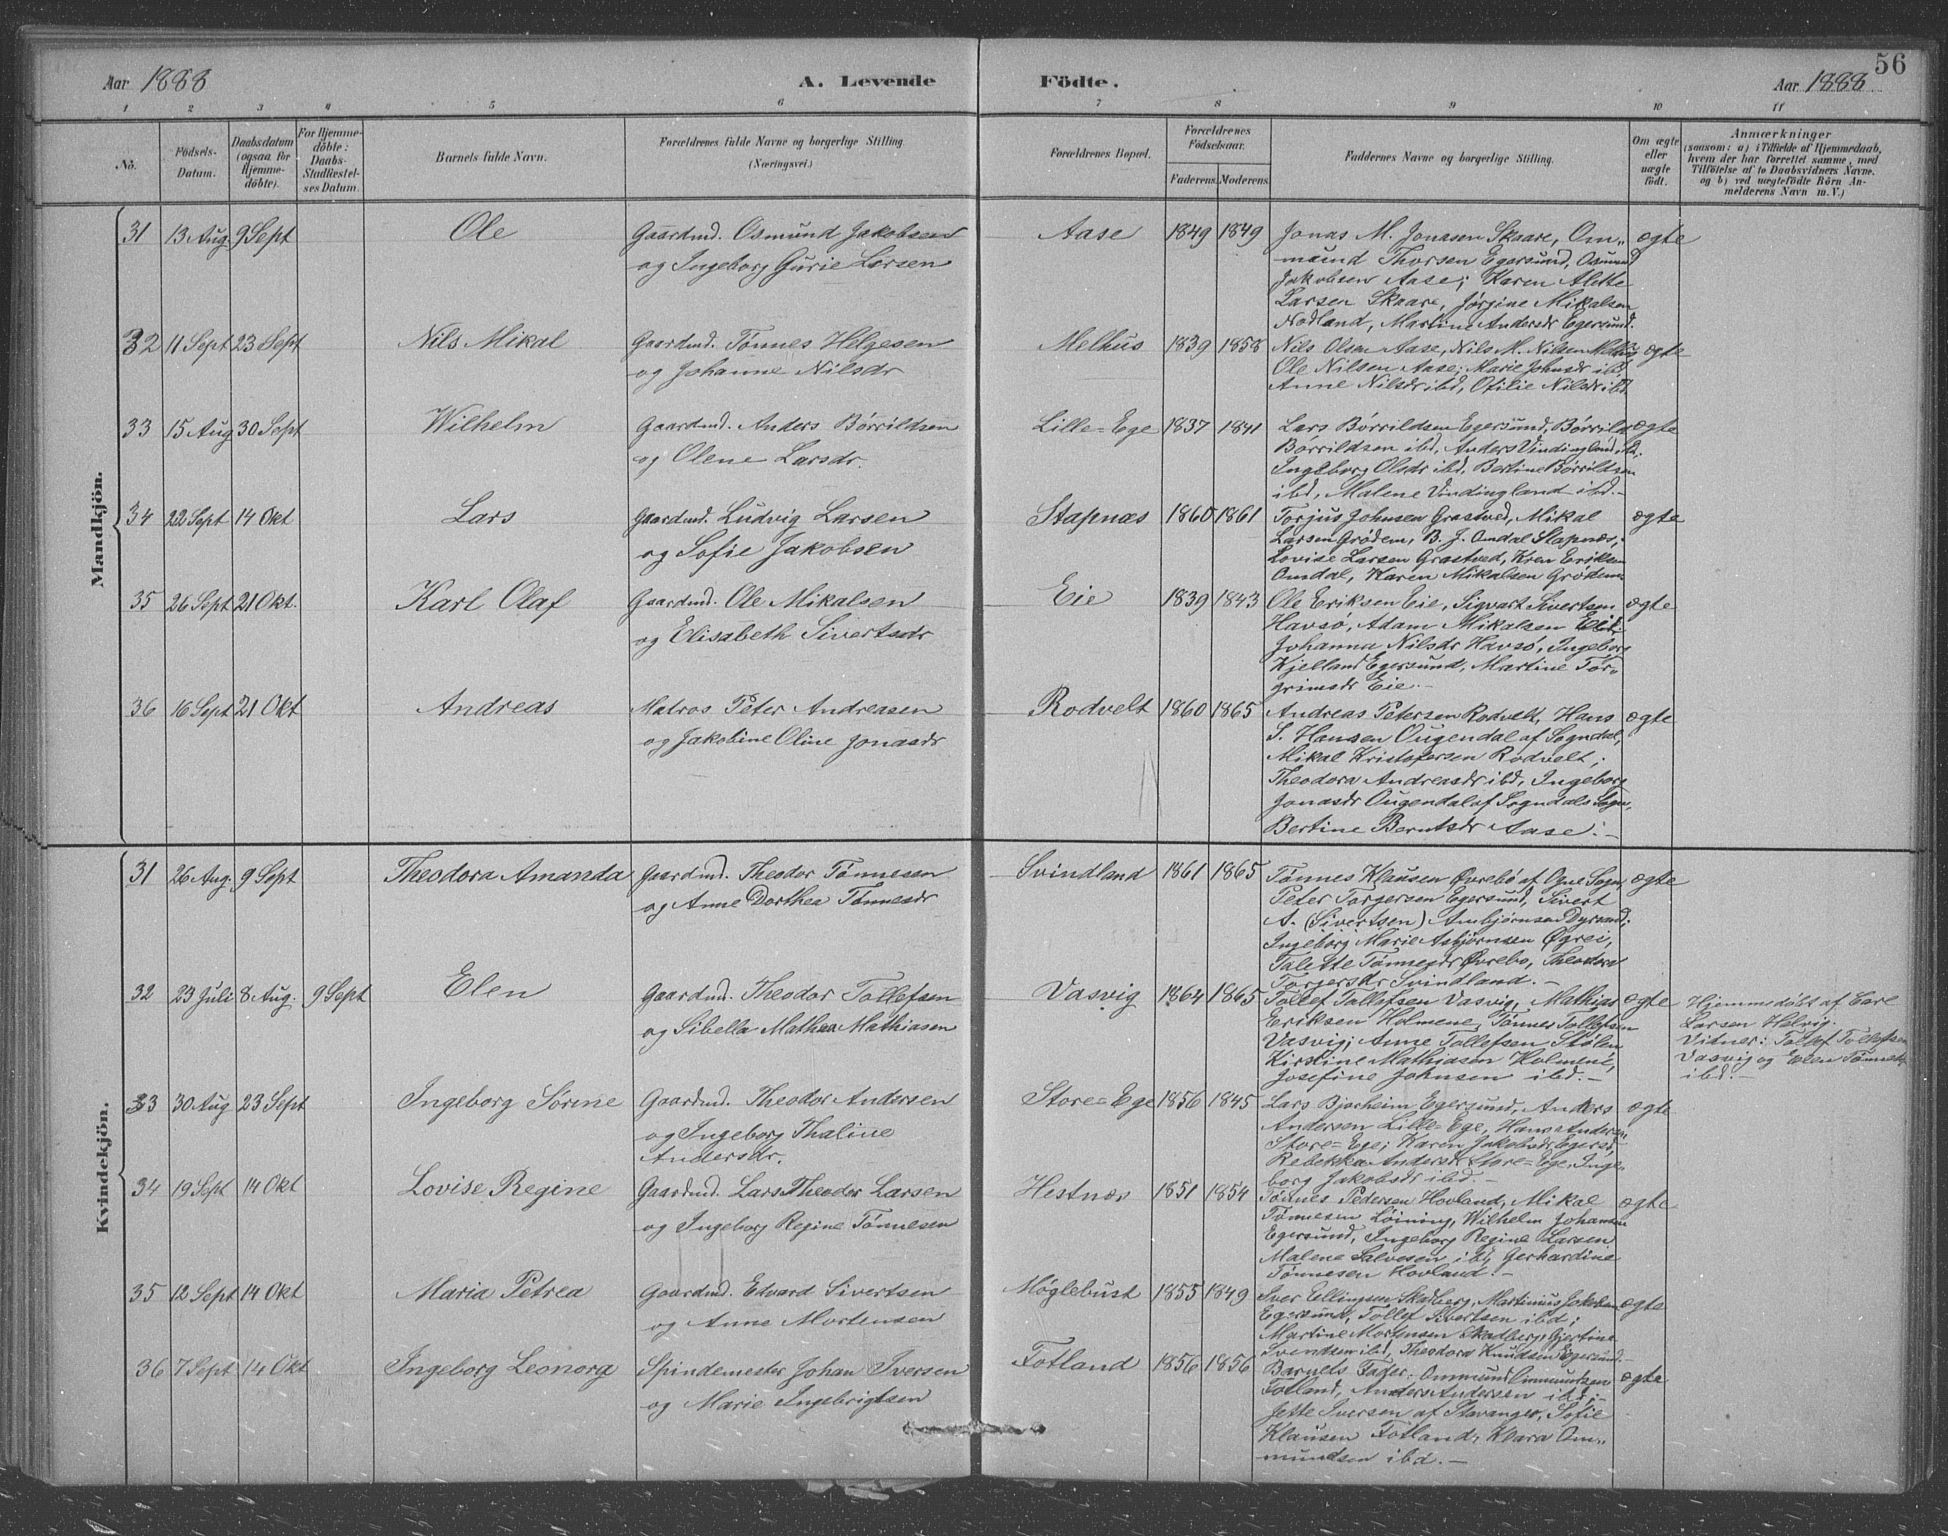 56
Aar 1888
A. Levende
Födte.
Aar 1888
1 2 3 4 5 6 7 8 9 10 11
No.
Födsels-
Datum.
Daabsdatum
(ogsaa for
Hjemme-
döbte).
For Hjemme-
döbte:
Daabs-
Stadfæstel-
ses Datum.
Barnets fulde Navn.
Forældrenes fulde Navne og borgerlige Stilling
(Næringsvei.)
Forældrenes Bopæl.
Forældrenes
Födselsaar.
Faderens. Moderens.
Faddernes Navne og borgerlige Stilling.
Om ægte
eller
uægte
födt.
Anmærkninger
(saasom: a) i Tilfælde af Hjemmedaab,
hvem der har forrettet samme, med
Tilföielse af to Daabsvidners Navne,
og b) ved uægtefödte Börn An-
melderens Navn m. V.)
Mandkjön.
31 13 Aug 9 Sept Ole Gaardmd. Osmund Jakobsen
og Ingeborg Gurie Larsen
Aase 1849 1849 Jonas M. Jonassen Skaare, Om„ ægte
mund Thorsen Egersund, Osmund
Jakobsen Aase; Karen Alette
Larsen Skaare, Jørgine Mikalsen
Nodland, Martine Andersdr Egersund.
32 11 Sept 23 Sept Nils Mikal Gaardmd. Tønnes Helgesen
og Johanne Nilsdr
Melhus 1839 1858 Nils Olsen Aase, Nils M. Nilsen Melhus ægte
Ole Nilsen Aase; Marie Johnsdr ibd,
Anne Nilsdr ibd, Otilie Nilsdr ibd.
33 15 Aug 30 Sept Wilhelm Gaardmd. Anders Børrildsen
og Olene Larsdr.
Lille=Ege 1837 1841 Lars Børrildsen Egersund, Børrild ægte
Børrildsen ibd, Anders Vindingland ibd.
Ingeborg Olsdr ibd, Bertine Børrildsen
ibd, Malene Vindingland ibd.-
34 22 Sept 14 Okt Lars Gaardmd. Ludvig Larsen
og Sofie Jakobsen
Stapnæs 1860 1861 Torjus Johnsen Grastved, Mikal ægte
Larsen Grødem, B. J. Omdal Stapnæs;
Lovise Larsen Grastved, Kren Eriksen
Omdal, Karen Mikalsen Grødem
35 26 Sept 21 Okt. Karl Olaf Gaardmd. Ole Mikalsen
og Elisabeth Sivertsdr
Eie 1839 1843 Ole Eriksen Eie, Sigvart Sivertsen ægte
Havsø, Adam Mikalsen Eie;
Johanna Nilsdr Havsø, Ingeborg
Kjelland Egersund, Martine Tor„
grimsdr Eie.-
36 16 Sept 21 Okt Andreas Matros Peter Andreasen
og Jakobine Oline Jonasdr
Rodvelt 1860 1865 Andreas Petersen Rodvelt, Hans ægte
S. Hansen Ougendal af Sogndal,
Mikal Kristofersen Rodvelt;
Theodora Andreasdr ibd, Ingeborg
Jonasdr Ougendal af Sogndals Sogn,
Bertine Berntsdr Aase.-
Kvindekjön.
31 26 Aug. 9 Sept Theodora Amanda Gaardmd. Theodor Tønnesen
og Anne Dorthea Tønnesdr
Svindland 1861 1865 Tønnes Klausen Øvrebø af Ogne Sogn, ægte
Peter Torgersen Egersund, Sivert
A. (Sivertsen) Ambjørnsen Dyrsand;
Ingeborg Marie Asbjørnsen Øgrei,
Talette Tønnesdr Øvrebø, Theodora
Torgersdr Svindland.-
32 23 Juli 8 Aug. 9 Sept Elen Gaardmd. Theodor Tollefsen
og Sibella Mathea Mathiasen
Vasvig 1864 1865 Tollef Tollefsen Vasvig, Mathias ægte
Eriksen Holmene, Tønnes Tollefsen
Vasvig; Anne Tollefsen Stølen
Kirstine Mathiasen Holmene,
Josefine Johnsen ibd.-
Hjemmedøbt af Carl
Larsen Helvig.
Vidner: Tollef Tollefsen
Vasvig og Elen Tønnesdr
ibd.
33 30 Aug 23 Sept Ingeborg Sørine Gaardmd. Theodor Andersen
og Ingeborg Thaline
Andersdr.
Store=Ege 1856 1845 Lars Bjerheim Egersund, Anders ægte
Andersen Lille=Ege, Hans Andersen
Store=Ege; Karen Jakobsdr Egersd,
Rebekka Andersdr Store=Ege, Inge„
borg Jakobsdr ibd.-
34 19 Sept 14 Okt Lovise Regine Gaardmd. Lars Theodor Larsen
og Ingeborg Regine Tønnesen
Hestnæs 1851 1854 Tønnes Pedersen Hovland, Mikal ægte
Tønnesen Løining, Wilhelm Johansen
Egersund, Ingeborg Regine Larsen
Malene Salvesen ibd, Gerhardine
Tønnesen Hovland.-
35 12 Sept 14 Okt Maria Petrea Gaardmd. Edvard Sivertsen
og Anne Mortensen
Møglebust 1855 1849 Iver Ellingsen Skadberg, Martinius Jakobsen ægte
Egersund, Tollef Sivertsen ibd;
Martine Mortensen Skadberg, Gjertine
Svendsen ibd, Theodora Knudsen Egersund.-
36 7 Sept 14 Okt Ingeborg Leonora Spindemester Johan Iversen
og Marie Ingebrigtsen
Fotland 1856 1856 Barnets Fader, Ommund Ommundsen ægte
Fotland, Anders Andersen ibd;
Jette Iversen af Stavanger, Sofie
Klausen Fotland, Klara Om„
mundsen ibd.-